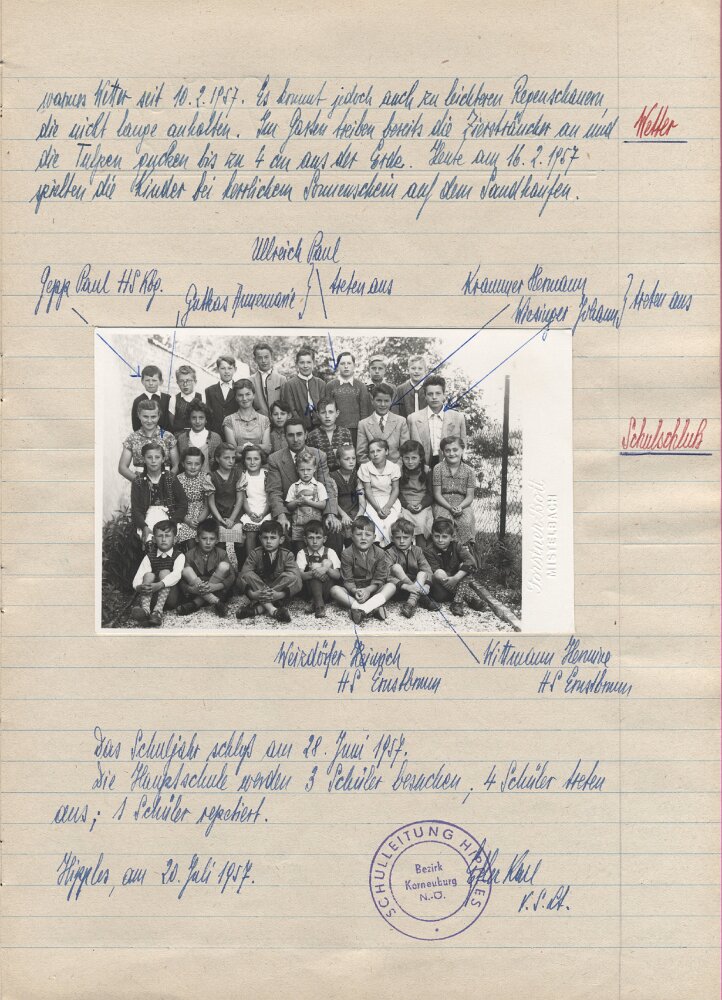 warmes Wetter seit 10.2.1957. Es kommt jedoch auch zu leichteren Regenschauern,
die nicht lange anhalten. Im Garten treiben bereits die Ziersträucher an und
Wetter
die Tulpen gucken bis zu 4 cm aus der Erde. Heute am 16.2.1957
spielten die Kinder bei herrlichem Sonnenschein auf dem Sandhaufen.
Ullreich Paul
Paul HS Kbg.
Annemarie } treten aus
Krammer Hermann
Wiesinger Johann } treten aus
Schulschluß
MISTELBACH
Heinrich
HS Ernstbrunn
Wittmann Hermine
HS Ernstbrunn
Das Schuljahr schloß am 28. Juni 1957.
Die Hauptschule werden 3 Schüler besuchen, 4 Schüler treten
aus; 1 Schüler repetiert.
Hipples, am 20. Juli 1957.
SCHULLEITUNG HIPPLES
Bezirk
Korneuburg
N.-Ö.
Karl